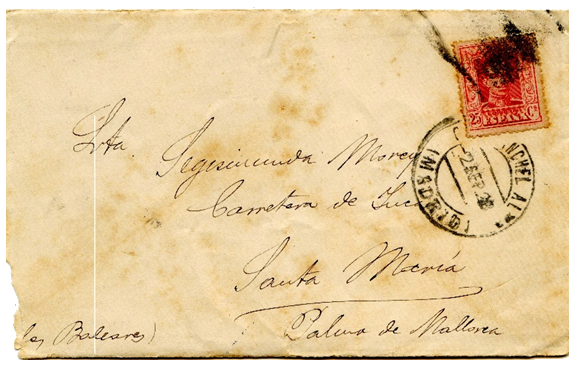 Srta Segismunda Morey
Carretera de Inca
Santa María
Palma de Mallorca
Baleares)
25 Cs
NCHEL AL
(MADRID)